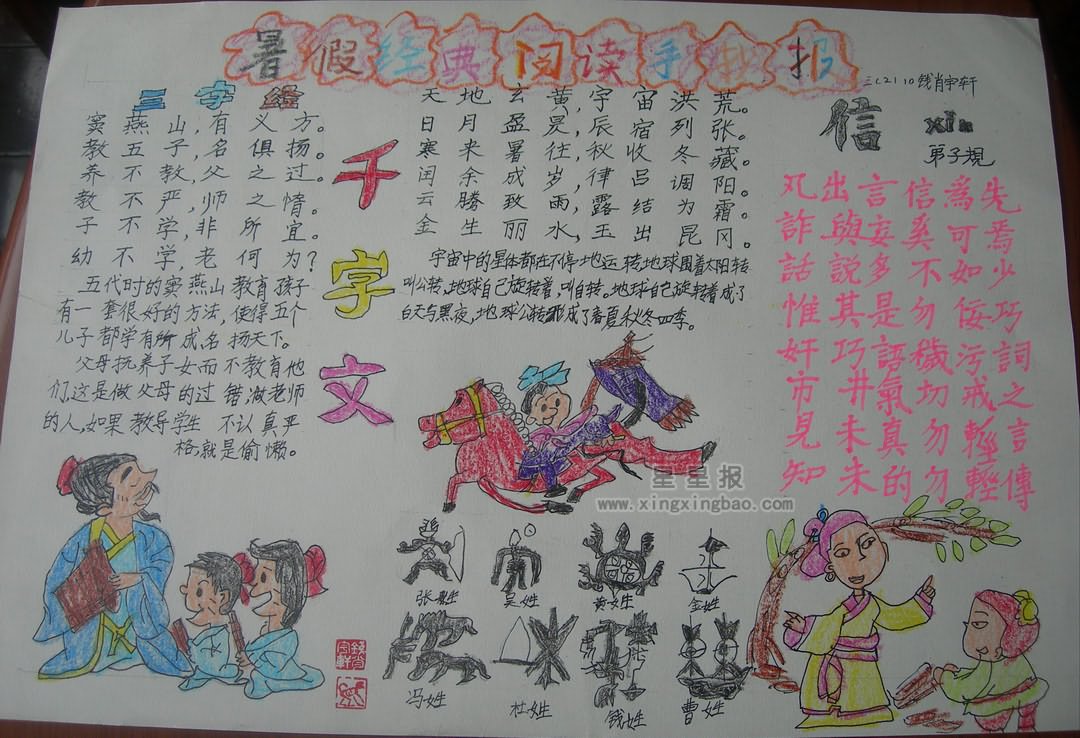 暑假经典阅读手抄报
三(2) 10 钱肖宇轩
三字经
窦燕山,有义方。
教五子,名俱扬。
养不教,父之过。
教不严,师之惰。
子不学,非所宜。
幼不学老何为?
五代时的窦燕山教育孩子
有一套很好的方法,使得五个
儿子都学有所成名扬天下。
父母抚养子女而不教育他
们,这是做父母的过错,做老师
的人,如果教导学生不认真严
格,就是偷懒。
千字文
天地玄黄,宇宙洪荒。
日月盈昃,辰宿列张。
寒来暑往,秋收冬藏。
闰余成岁,律吕调阳。
云腾致雨,露结为霜。
金生丽水,玉出昆冈。
宇宙中的星体都在不停地运转,地球围着太阳转
叫公转,地球自己旋转着,叫自转。地球自己旋转着成了
白天与黑夜,地球公转形成了春夏秋冬四季。
信
xìn
弟子規
凡出言信為先
詐與妄奚可焉
話說多不如少
惟其是勿佞巧
奸巧語穢污詞
市井氣切戒之
見未真勿輕言
知未的勿輕傳
星星报
www.xingxingbao.com
张姓
吴姓
黄姓
金姓
冯姓
杜姓
钱姓
曹姓